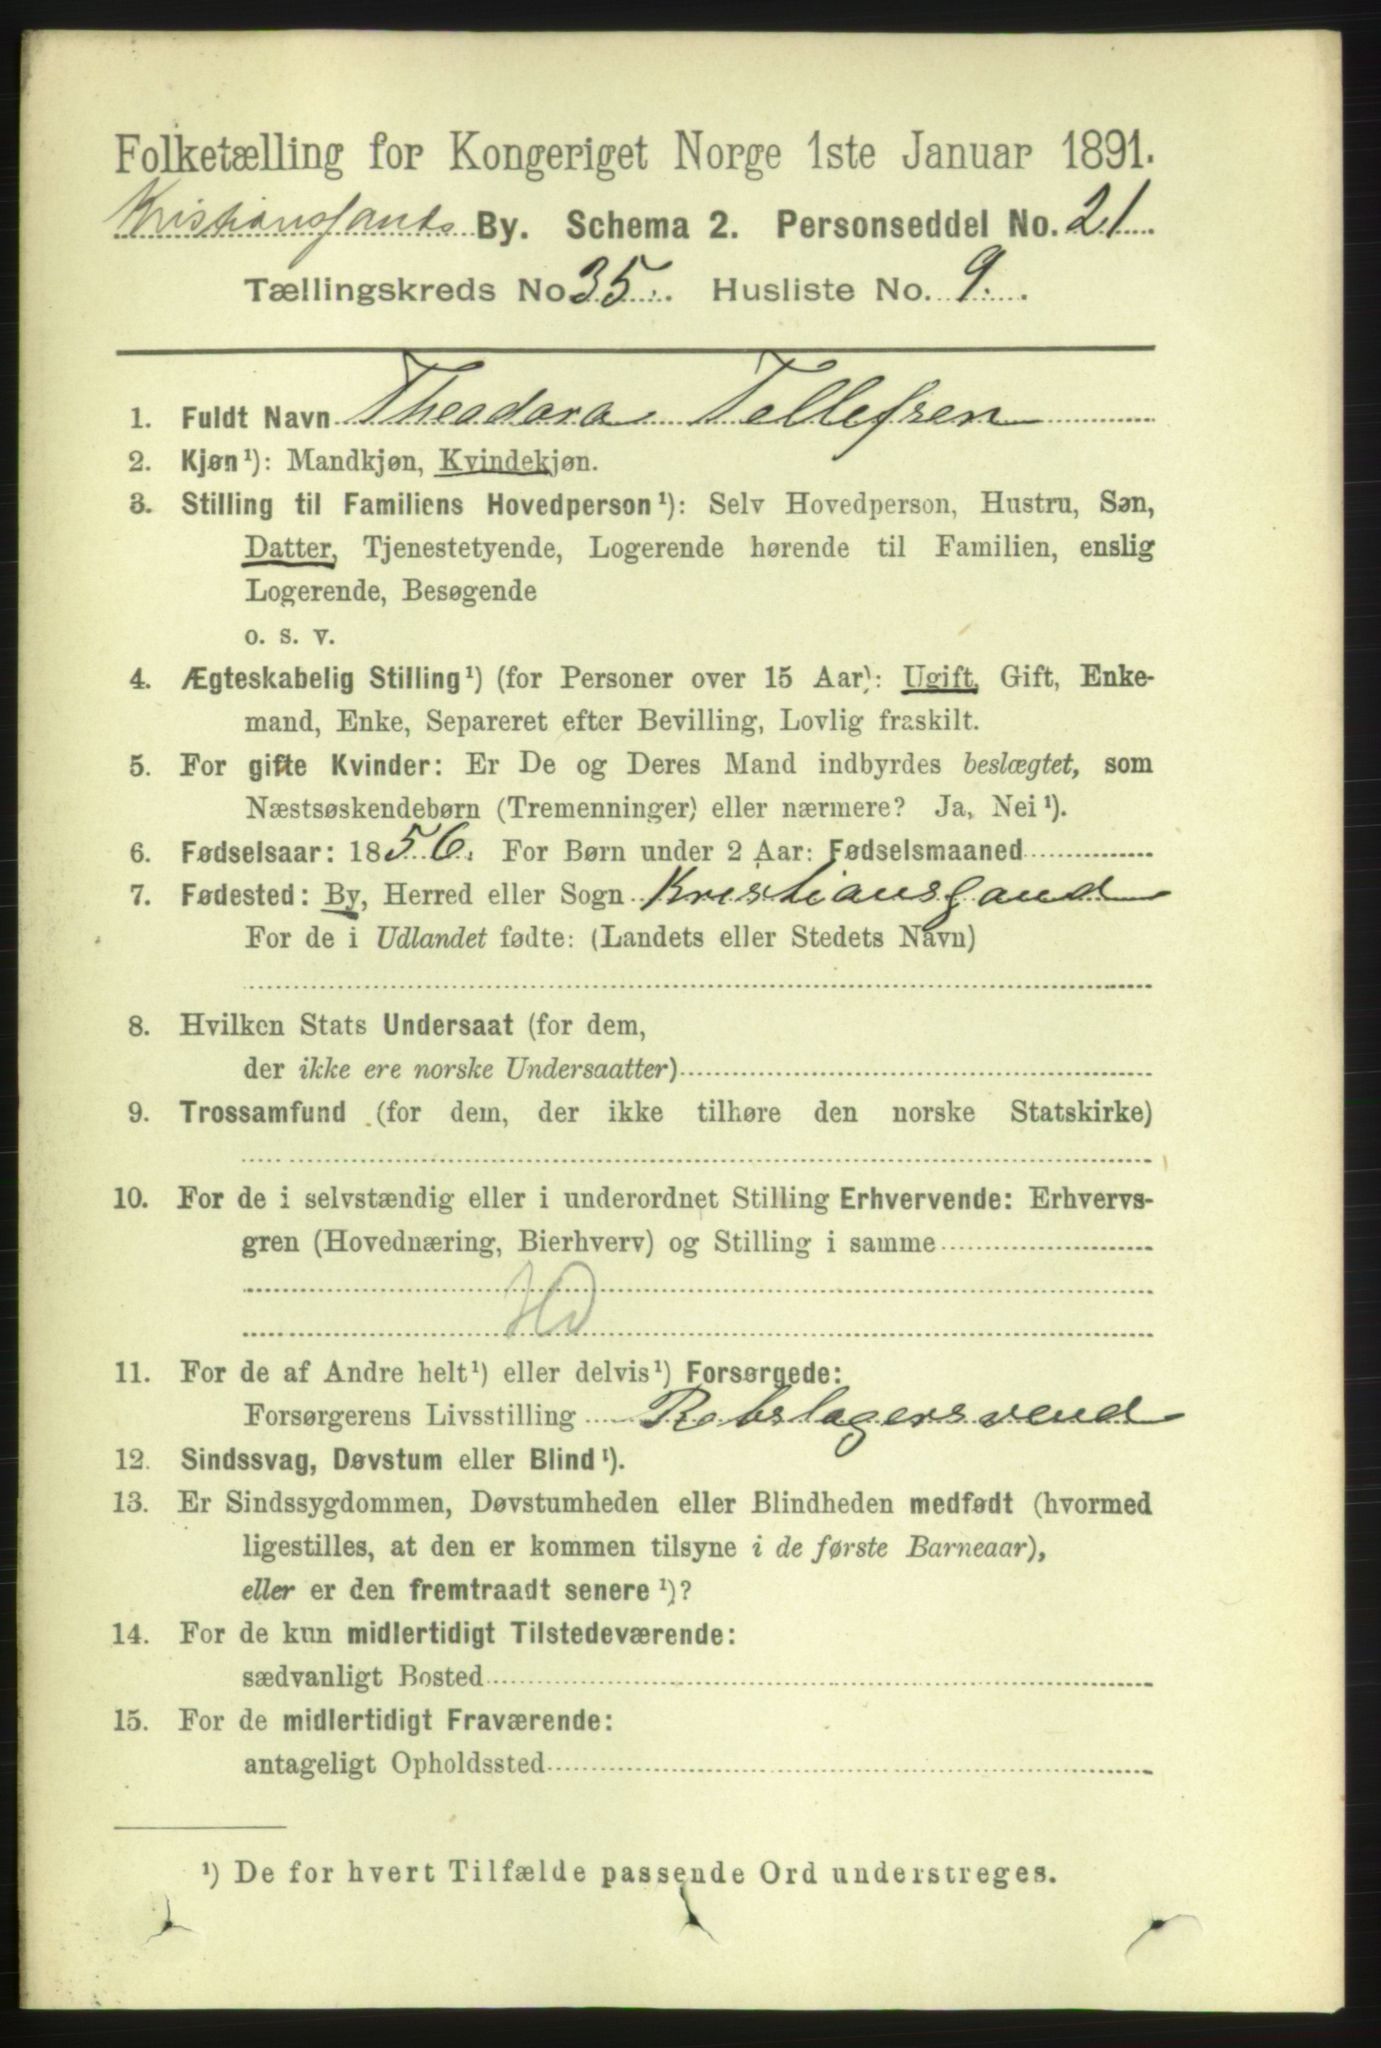 Folketælling for Kongeriget Norge 1ste Januar 1891.
Kristianssands By. Schema 2. Personseddel No. 21
Tællingskreds No 35. Husliste No. 9.
1. Fuldt Navn Theodora Tellefsen
2. Kjøn¹): Mandkjøn, Kvindekjøn.
3. Stilling til Familiens Hovedperson¹): Selv Hovedperson, Hustru, Søn,
Datter, Tjenestetyende, Logerende hørende til Familien, enslig
Logerende, Besøgende
o. s. v.
4. Ægteskabelig Stilling¹) (for Personer over 15 Aar): Ugift, Gift, Enke-
mand, Enke, Separeret efter Bevilling, Lovlig fraskilt.
5. For gifte Kvinder: Er De og Deres Mand indbyrdes beslægtet, som
Næstsøskendebørn (Tremenninger) eller nærmere? Ja, Nei¹).
6. Fødselsaar: 1856. For Børn under 2 Aar: Fødselsmaaned
7. Fødested: By, Herred eller Sogn Kristianssand
For de i Udlandet fødte: (Landets eller Stedets Navn)
8. Hvilken Stats Undersaat (for dem,
der ikke ere norske Undersaatter)
9. Trossamfund (for dem, der ikke tilhøre den norske Statskirke)
10. For de i selvstændig eller i underordnet Stilling Erhvervende: Erhvervs-
gren (Hovednæring, Bierhverv) og Stilling i samme
11. For de af Andre helt¹) eller delvis¹) Forsørgede:
Forsørgerens Livsstilling Rebslagersvend
12. Sindssvag, Døvstum eller Blind¹).
13. Er Sindssygdommen, Døvstumheden eller Blindheden medfødt (hvormed
ligestilles, at den er kommen tilsyne i de første Barneaar),
eller er den fremtraadt senere¹)?
14. For de kun midlertidigt Tilstedeværende:
sædvanligt Bosted
15. For de midlertidigt Fraværende:
antageligt Opholdssted
¹) De for hvert Tilfælde passende Ord understreges.